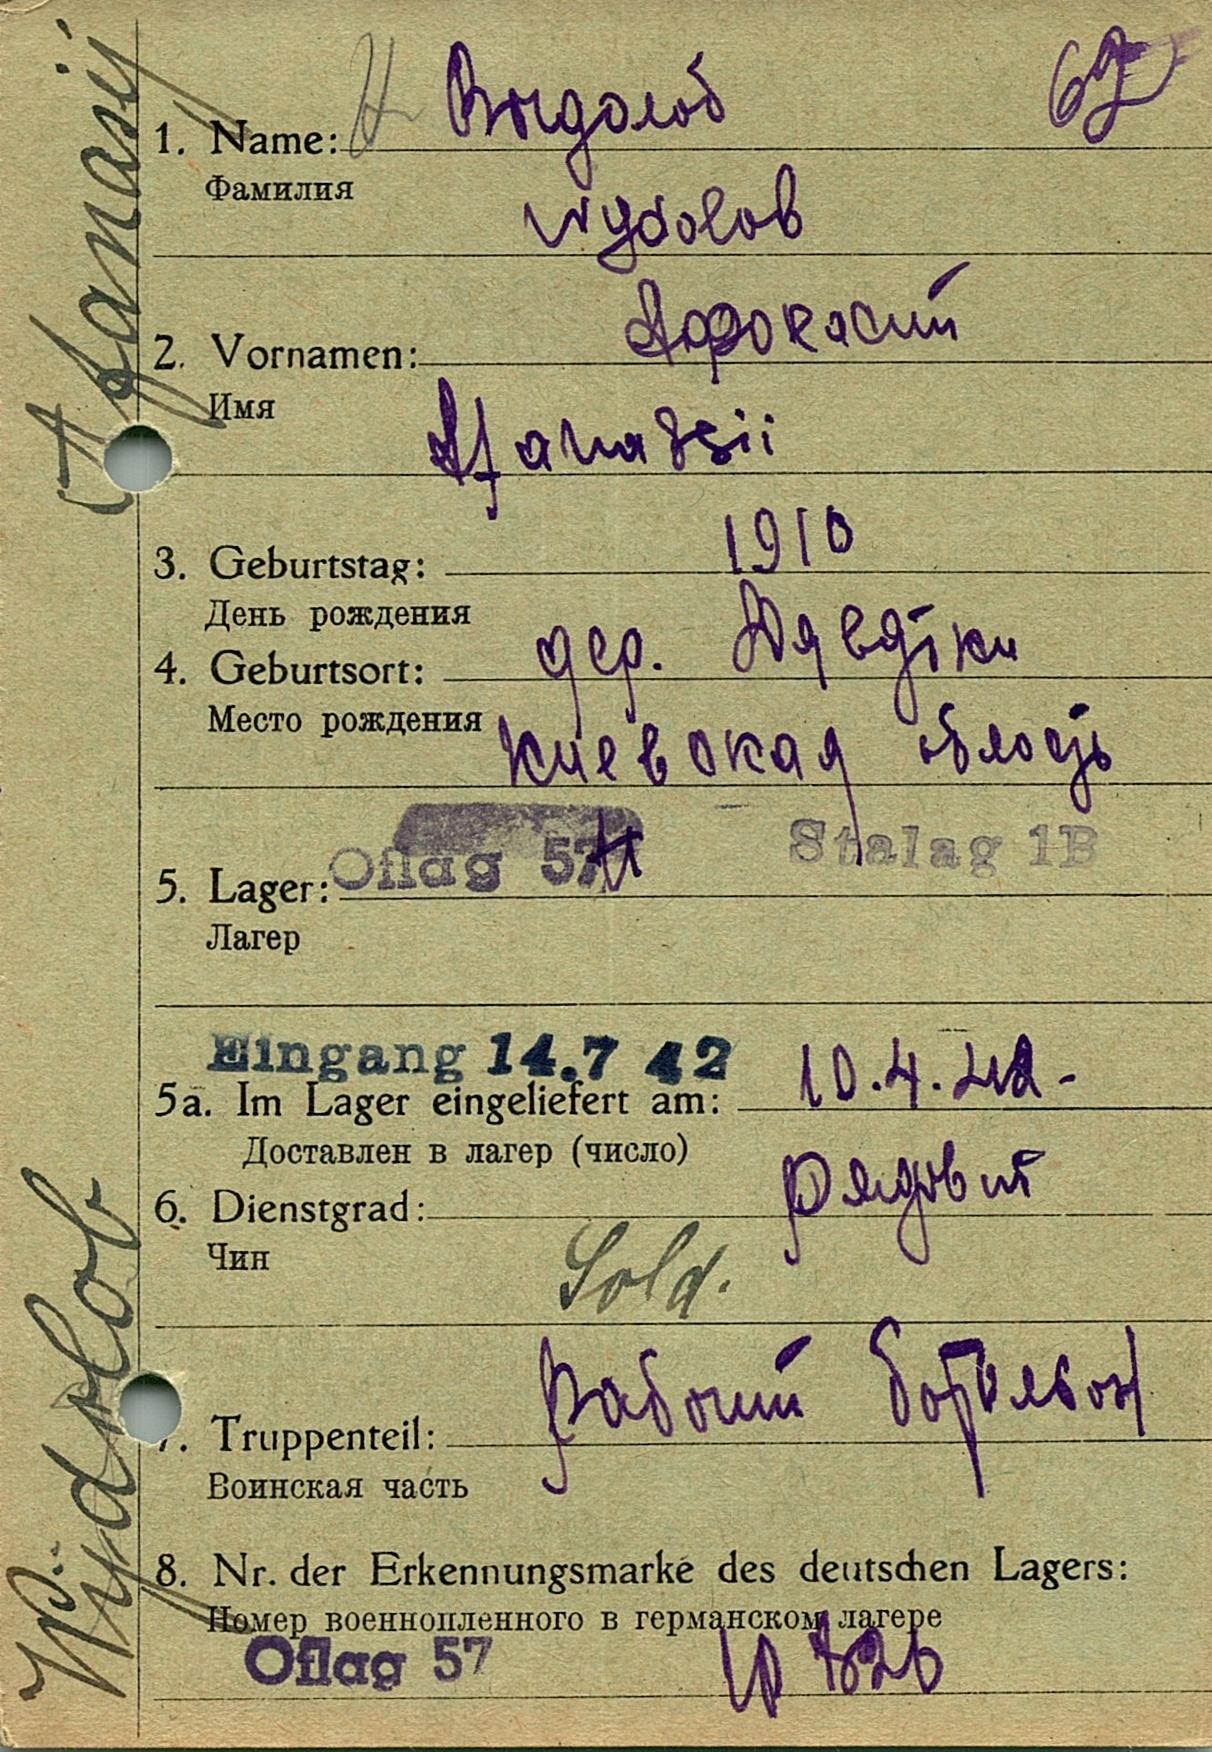 Afanasij
Wijdolob
1. Name: Выдолоб
Фамилия
Wydolob
2. Vornamen:
Имя
Afanassii
3. Geburtstag: 1910
День рождения
4. Geburtsort: дер.
Место рождения Киевская область
Oflag 57 Stalag 1B
5. Lager:
Лагер
Eingang 14.7 42
5a. Im Lager eingeliefert am: 10.4.42-
Доставлен в лагер (число)
6. Dienstgrad: Рядовий
Чин
Sold.
7. Truppenteil: Рабочий
Воинская часть
8. Nr. der Erkennungsmarke des deutschen Lagers:
Номер военнопленного в германском лагере
Oflag 57